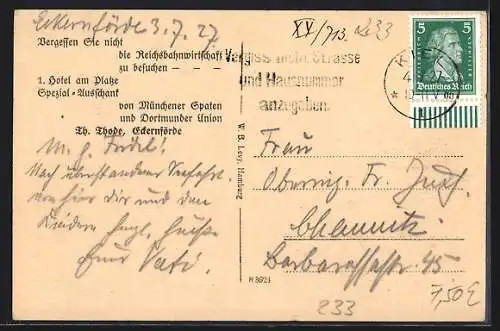 Eckernförde 3.7.27
Vergessen Sie nicht
die Reichsbahnwirtschaft
zu besuchen
1. Hotel am Platze
Spezial-Ausschank
von Münchener Spaten
und Dortmunder Union
Th. Thode, Eckernförde
M. g.
Nach überstandener Seefahrt
von hier Dir und den
Kindern herzl. Grüße
Euer Vati.
W. B. Levy, Hamburg
R 3621
XV/713. 233
Vergiss nicht Strasse
und Hausnummer
anzugeben.
5 5
Deutsches Reich
Frau
Oboring. Fr.
Chemnitz
Barbarossastr 45
233
7,50 E